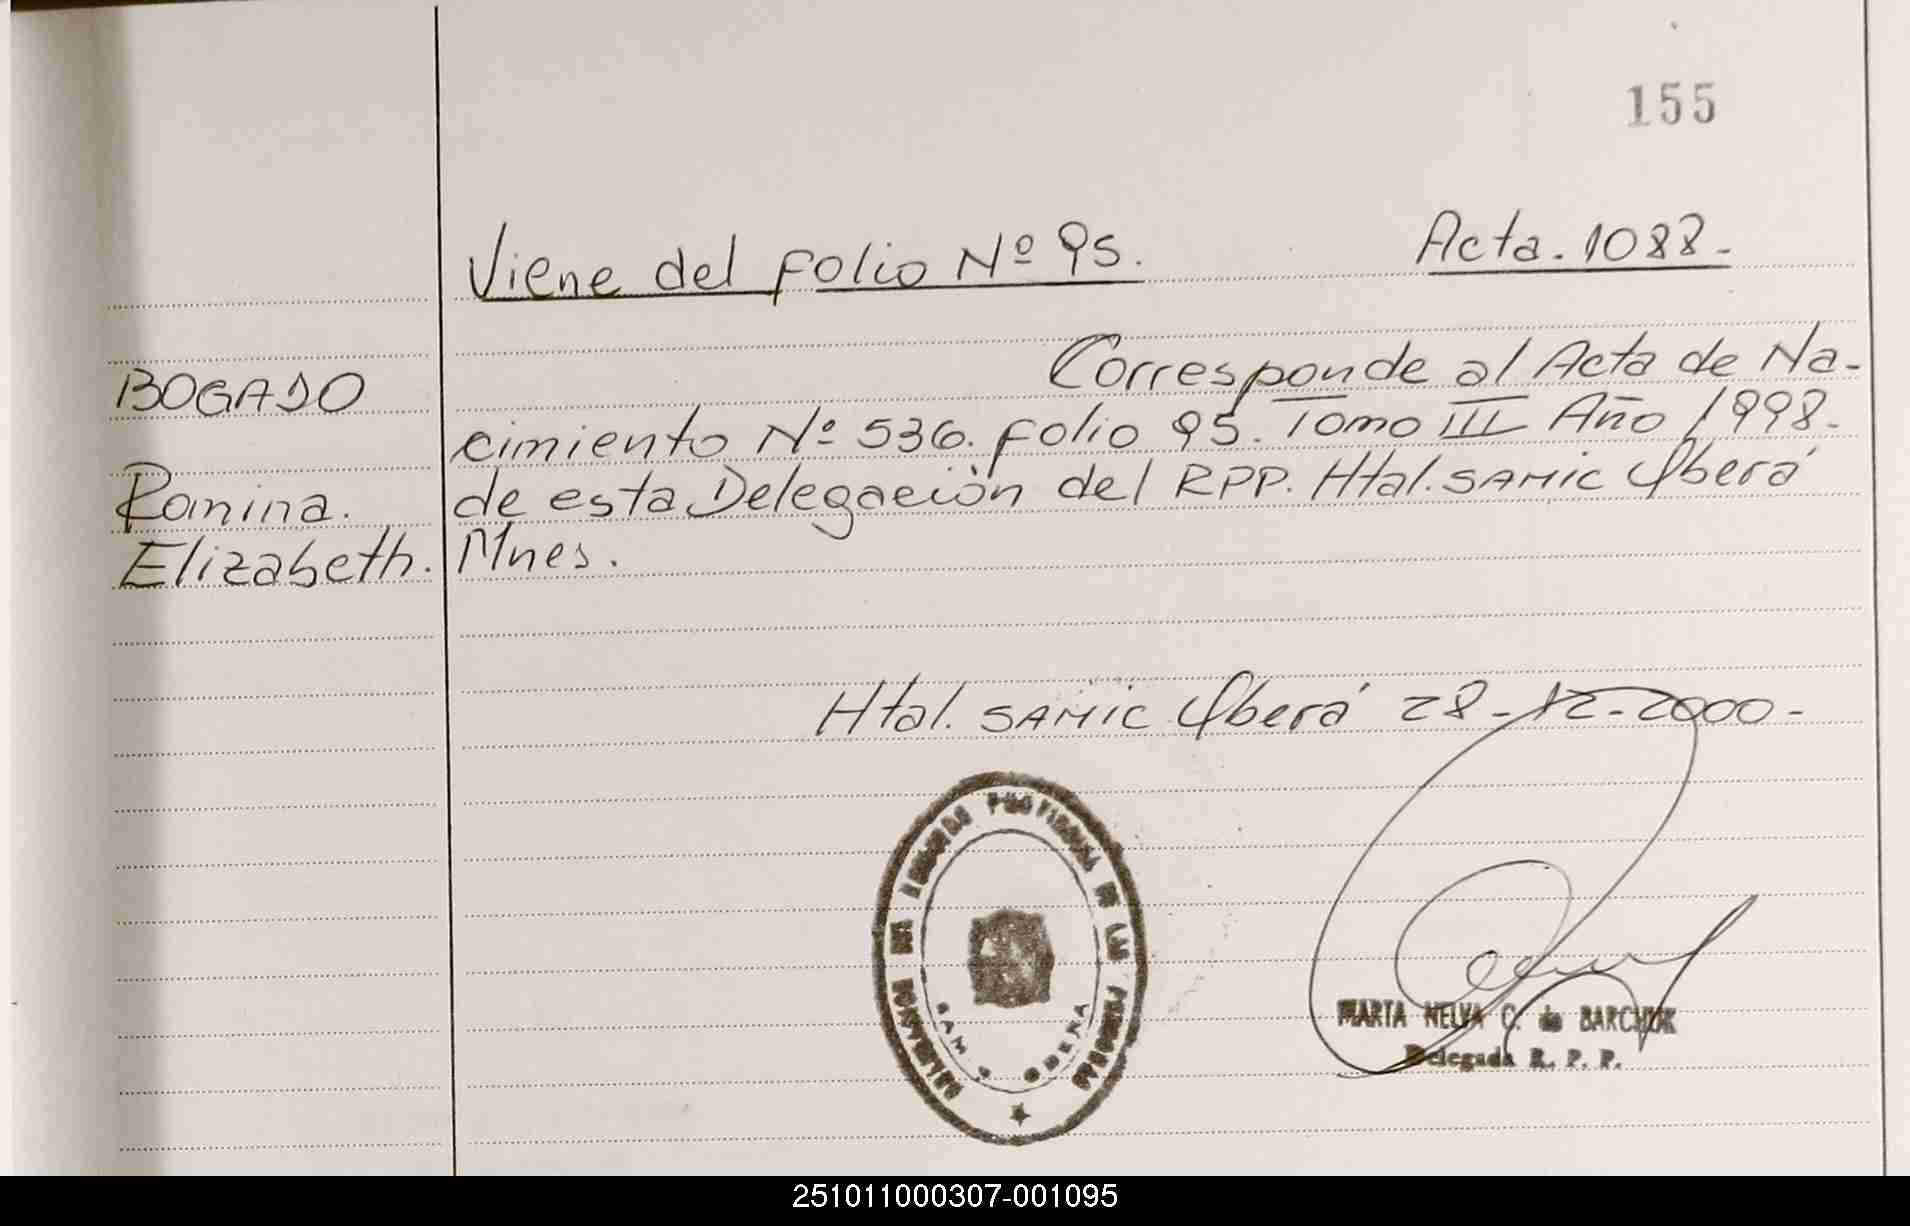 155
Viene del folio Nº 95. Acta. 1088.-
BOGADO
Romina.
Elizabeth.
Corresponde al Acta de Na-
cimiento Nº 536. folio 95. Tomo III Año 1998.-
de esta Delegación del RPP. Htal. SAMIC Oberá
Mnes.
Htal. SAMIC Oberá 28-12-2000-
MARTA NELVA C. de BARCHUK
Delegada R. P. P.
251011000307-001095